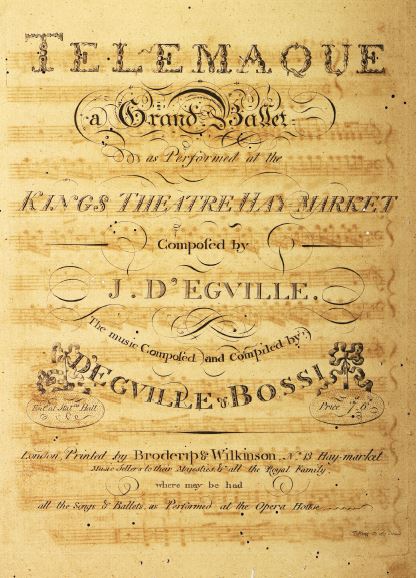 TELEMAQUE
a Grand Ballet
as Performed at the
KINGS THEATRE HAY MARKET
Composed by
J. D'EGVILLE.
The music Composed and Compiled by
D'EGVILLE & BOSSI
Ent. at Stat.rs Hall
Price 7s. 6
London, Printed by Broderip & Wilkinson, No. 13 Hay-market
Music Sellers to their Majesties, & all the Royal Family
where may be had
all the Songs & Ballets, as Performed at the Opera House